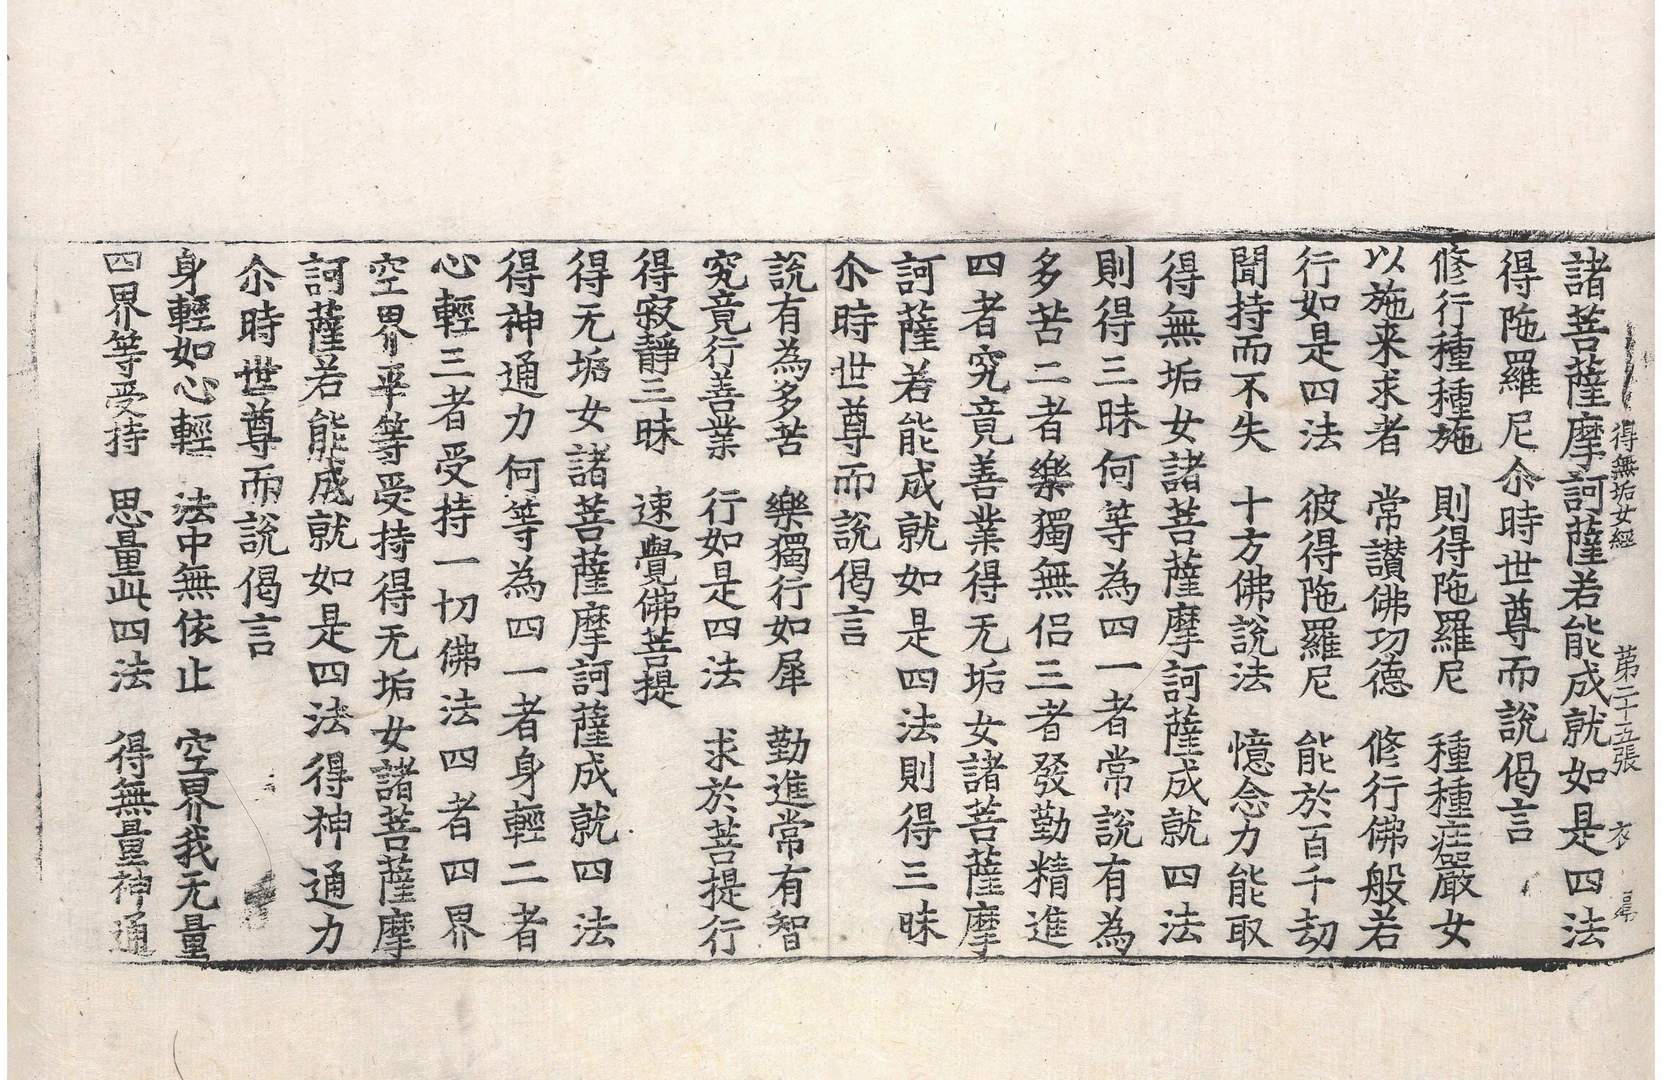 得無垢女經 第二十五張 衣
諸菩薩摩訶薩若能成就如是四法
得陁羅尼尒時世尊而說偈言
修行種種施 則得陁羅尼 種種莊嚴女
以施来求者 常讃佛功德 修行佛般若
行如是四法 彼得陁羅尼 能於百千劫
聞持而不失 十方佛說法 憶念力能取
得無垢女諸菩薩摩訶薩成就四法
則得三昧何等為四一者常說有為
多苦二者樂獨無侶三者發勤精進
四者究竟善業得无垢女諸菩薩摩
訶薩若能成就如是四法則得三昧
尒時世尊而說偈言
說有為多苦 樂獨行如犀 勤進常有智
究竟行善業 行如是四法 求於菩提行
得寂靜三昧 速覺佛菩提
得无垢女諸菩薩摩訶薩成就四法
得神通力何等為四一者身輕二者
心輕三者受持一切佛法四者四界
空界平等受持得无垢女諸菩薩摩
訶薩若能成就如是四法得神通力
尒時世尊而說偈言
身輕如心輕 法中無依止 空界我无量
四界等受持 思量此四法 得無量神通